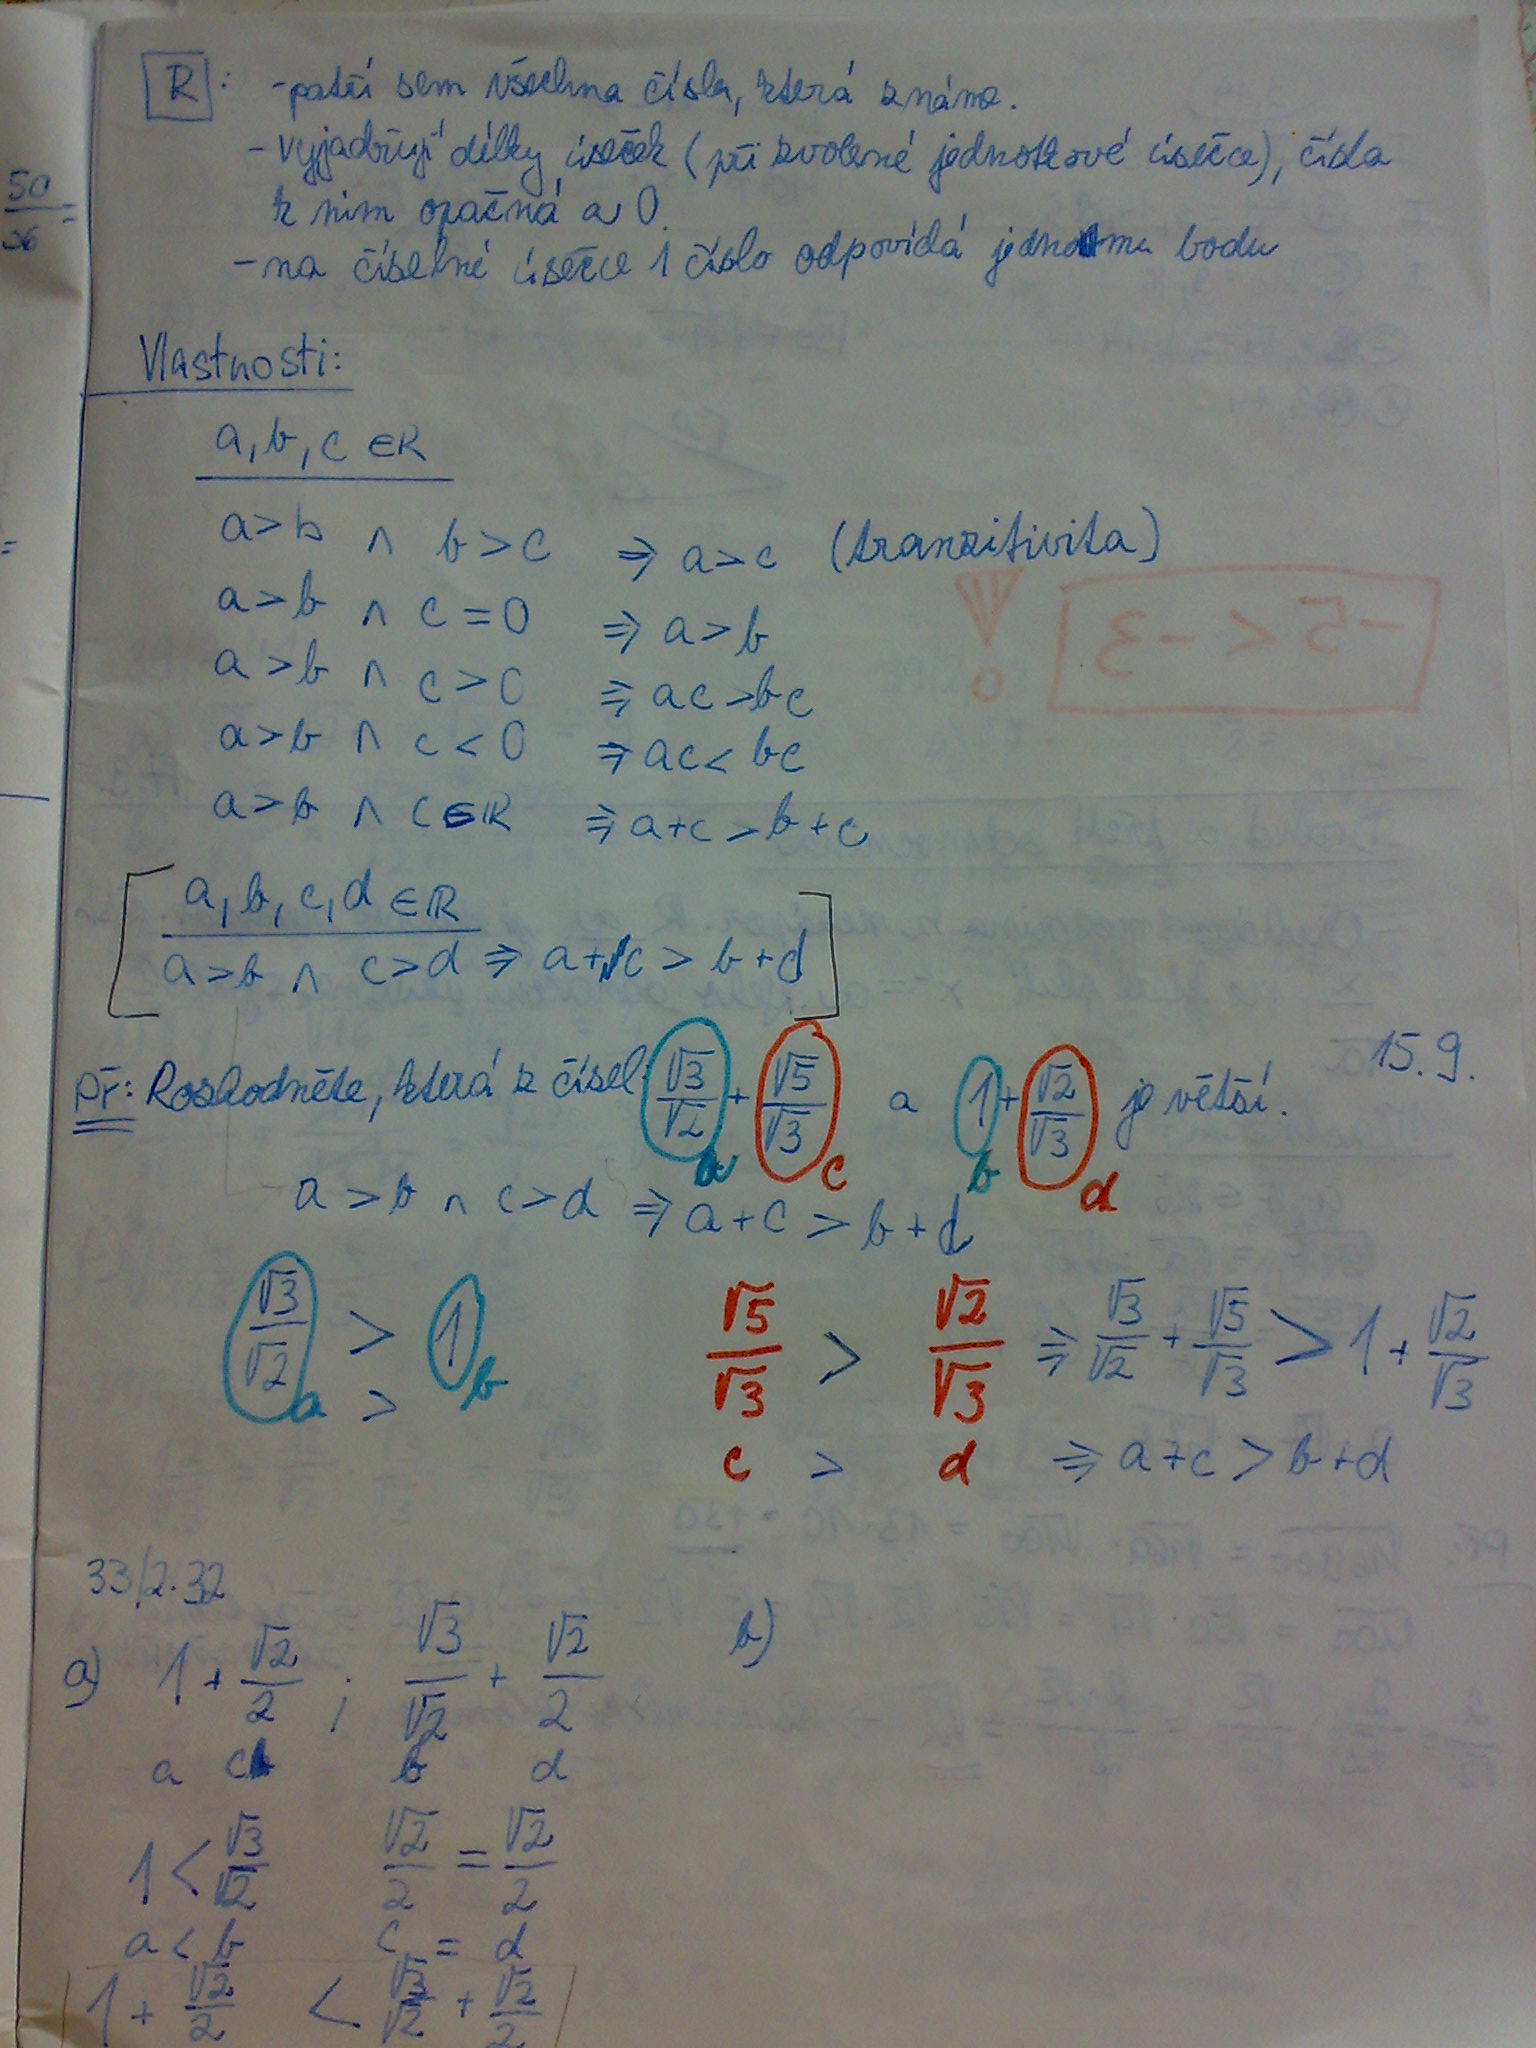 R: - patří sem všechna čísla, která známe.
- vyjadřují délky úseček (při zvolené jednotkové úsečce), čísla
k nim opačná a 0.
- na číselné úsečce 1 číslo odpovídá jednomu bodu
50/36 =
=
Vlastnosti:
a, b, c ∈ R
a > b ∧ b > c ⇒ a > c (tranzitivita)
a > b ∧ c = 0 ⇒ a > b
a > b ∧ c > 0 ⇒ ac > bc
a > b ∧ c < 0 ⇒ ac < bc
a > b ∧ c ∈ R ⇒ a + c > b + c
-5 < -3 !
[ a, b, c, d ∈ R
a > b ∧ c > d ⇒ a + c > b + d ]
15.9.
Př: Roshodněte, která z čísel √3/√2 + √5/√3 a 1 + √2/√3 je větší.
a c b d
a > b ∧ c > d ⇒ a + c > b + d
√3/√2 > 1 √5/√3 > √2/√3 ⇒ √3/√2 + √5/√3 > 1 + √2/√3
a > b c > d ⇒ a + c > b + d
33/2.32
a) 1 + √2/2 ; √3/√2 + √2/2 b)
a c b d
1 < √3/√2 √2/2 = √2/2
a < b c = d
1 + √2/2 < √3/√2 + √2/2